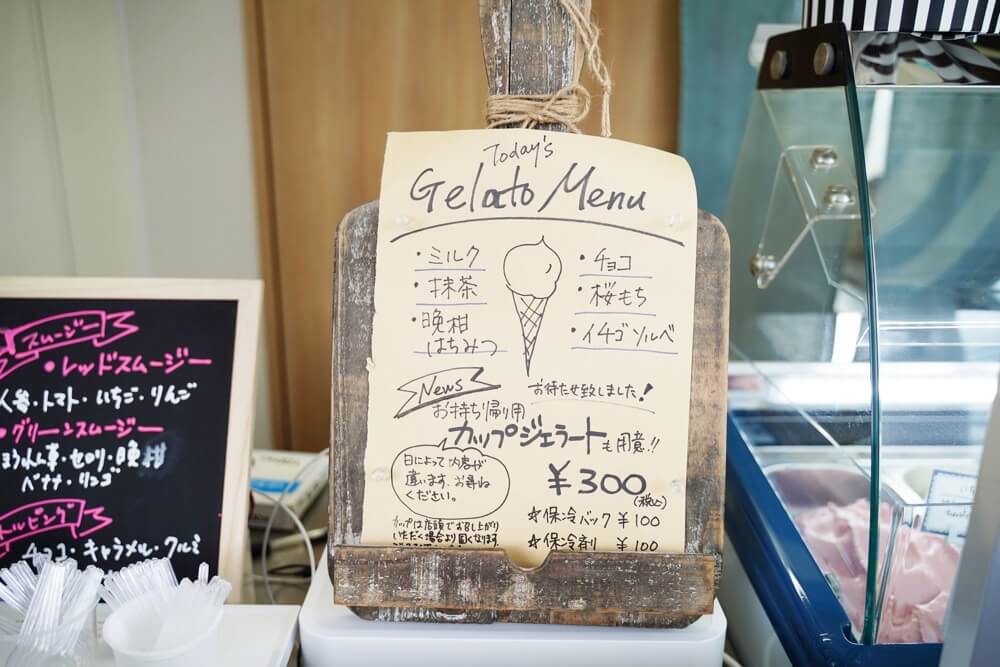 Today's
Gelato Menu
・ミルク
・抹茶
・晩柑
はちみつ
・チョコ
・桜もち
・イチゴソルベ
News
お待たせ致しました!
お持ち帰り用
カップジェラートも用意!!
日によって内容が
違います。お尋ね
ください。
¥300
(税込)
カップは店頭でお召し上がり
いただく場合より固くなります
☆保冷バック ¥100
☆保冷剤 ¥100
スムージー
・レッドスムージー
人参・トマト・いちご・りんご
・グリーンスムージー
ほうれん草・セロリ・晩柑
バナナ・リンゴ
トルピング
チョコ・キャラメル・クルミ